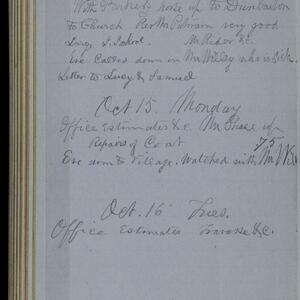 With Parker's horse up to Dunbarton
to Church Rev Mr Putnam very good
Mr Rider &c.
Eve Called down on Mr Willey who is sick.
Letter to Lucy & Samuel
Oct 15. Monday
Office Estimates &c. Mr Chase up
Repairs of Coat 75
Eve down to Village. Watched with Mr W
Oct. 16 Tues.
Office Estimates &c.